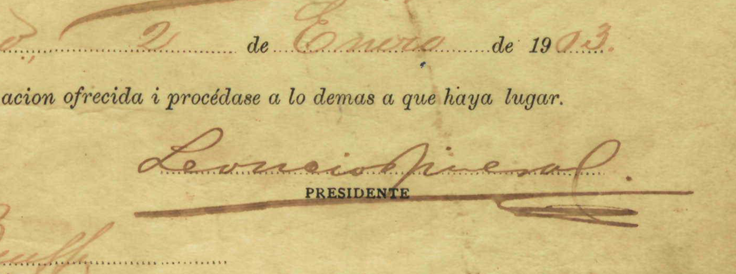 2 de Enero de 1903.
acion ofrecida i procédase a lo demas a que haya lugar.
Leoncio
PRESIDENTE